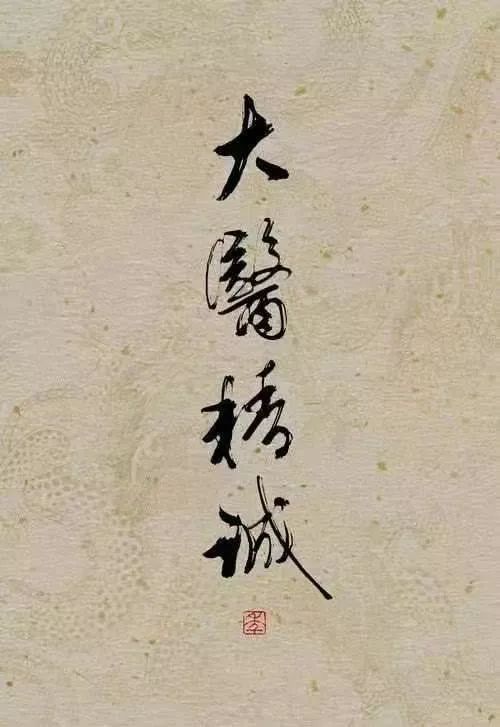 大醫精誠